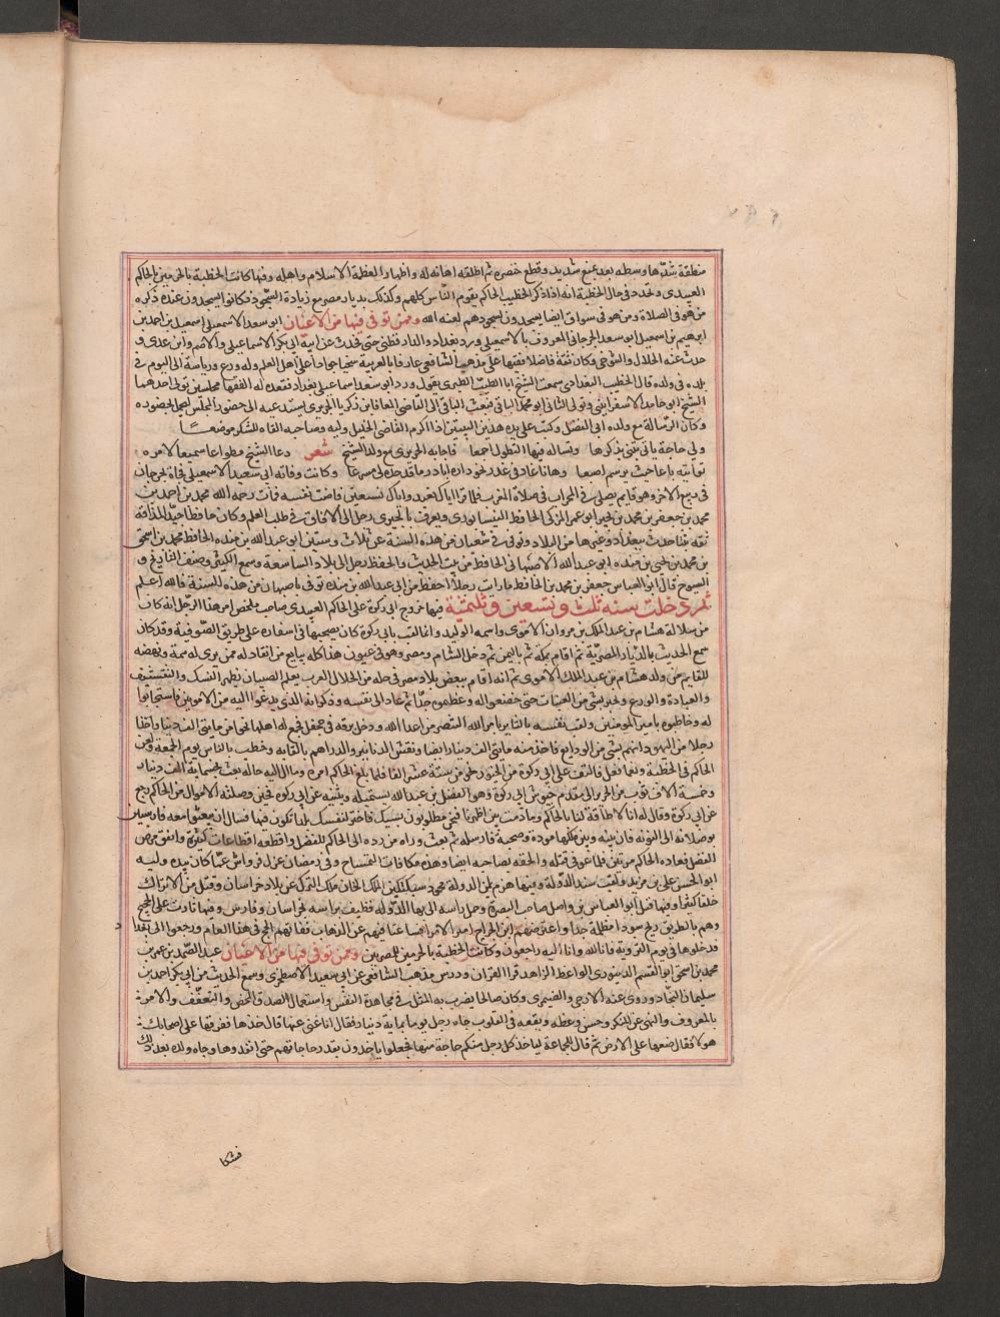 منطقة شدها وسطه بعد عنع شديد وقطع خصره ثم اطلقه اهانة له واظهارا لعظمة الاسلام واهله وفيها كانت الخطبة بالحرمين للحاكم
العبيدى وتجدد فى حال الخطبة انه اذا ذكر الخطيب الحاكم يقوم الناس كلهم وكذلك بديار مصر مع زيادة السجود فكانوا يسجدون عند ذكره
من هو فى الصلاة ومن هو فى سواق ايضا يسجدون لسجودهم لعنه الله وممن توفى فيها من الاعيان ابو سعد الاسمعيلى اسمعيل بن احمد بن
ابرهيم بن اسمعيل ابو سعد الجرجانى المعروف بالاسمعيلى ورد بغداد والدارقطنى حى فحدث عن ابيه ابى بكر الاسماعيلى والاصم وابن عدى و
حدث عنه الخلال والتنوخى وكان ثقة فاضلا فقيها على مذهب الشافعى عارفا بالعربية سخيا جوادا على اهل العلم وله ورع ورياسة الى اليوم فى
بلده فى ولده قال الخطيب البغدادى سمعت الشيخ ابا الطيب الطبرى يقول ورد ابو سعد اسماعيلى بغداد فعقد له الفقها مجلسين تولى احدهما
الشيخ ابو حامد الاسفراينى وتولى الثانى ابو محمد الباقى فبعث الباقى الى القاضى المعافا بن زكريا الجريرى يستدعيه الى حضور المجلس ليجمل بحضوره
وكان الرسالة مع ولده ابى الفضل وكتب على يده هذين البيتين اذا اكرم القاضى الجليل وليه وصاحبه القاه للشكر موضعا
ولى حاجة ياتى بنى بذكرها ويساله فيها التطول اجمعا فاجابه الجريرى مع ولد الشيخ شعر دعا الشيخ مطواعا سميعا لامره
نواتيه باعا حيث يرسم اصبعا وهانا غاد فى غد نحو داره ابادر ما قد حده لى مسرعا وكانت وفاته ابى سعيد الاسمعيلى فجاة بجرجان
فى ربيع الاخر وهو قايم يصلى فى المحراب فى صلاة المغرب فلما قرا اياك نعبد واياك نستعين فاضت نفسه فمات رحمه الله محمد بن احمد بن
محمد بن جعفر بن محمد بن بحير ابو عمر المزكى الحافظ النيسابورى ويعرف بالبحيرى رحل الى الافاق فى طلب العلم وكان حافظا جيد المذاكرة
ثقة ثبتا حدث ببغداد وغيرها من البلاد وتوفى فى شعبان من هذه السنة عن ثلاث وستين ابو عبد الله بن منده الحافظ محمد بن اسحق
بن محمد بن يحيى بن منده ابو عبد الله الاصبهانى الحافظ من بيت الحديث والحفظ رحل الى البلاد الشاسعة وسمع الكثير وصنف التاريخ و
الشيوخ قال ابو العباس جعفر بن محمد بن الحافظ ما رايت رجلا احفظ من ابى عبد الله بن منده توفى باصبهان من هذه السنة فالله اعلم
ثم دخلت سنه ثلث وتسعين وثلثمئة فيها خروج ابى ركوة على الحاكم العبيدى صاحب مصر ملخص امر هذا الرجل انه كان
من سلالة هشام بن عبد الملك بن مروان الاموى واسمه الوليد وانما لقب بابى ركوة لركوة كان يصحبها فى اسفاره على طريق الصوفية وقد كان
سمع الحديث بالديار المصرية ثم اقام بمكة ثم باليمن ثم دخل الشام ومصر وهو فى غبون هذا كله يبايع من انقاد له ممن يرى له همة ونهضه
للقايم من ولد هشام بن عبد الملك الاموى ثم انه اقام ببعض بلاد مصر فى حله من الحلال العرب يعلم الصبيان ويظهر النسك والتقشف
والعبادة والورع ويخبر بشى من المغيبات حتى خضعوا له وعظموه جدا ثم عاد الى نفسه وذكر انه الذى يدعوا اليه من الامويين فاستجابوا
له وخاطبوه بامير المومنين ولقب بنفسه بالثاير بامر الله المنتصر من اعدا الله ودخل برقه فى جحفل فجمع له اهلها نحوا من مايتى الف دينار واخذ
رجلا من اليهود اتهم بشى من الودايع فاخذ منه مايتى الف دينار ايضا ونقش الدنانير والدراهم بالقابه وخطب بالناس يوم الجمعة ولعن
الحاكم فى الخطبة ونعما فعل فالتف على ابى ركوة من الجنود نحو من ستة عشر الفا فلما بلغ الحاكم امره وما ال اليه حاله بعث بخمسماية الف دينار
وخمسة الاف ثوب من الحرير الى مقدم جيوش ابى ركوة وهو الفضل بن عبد الله يستميله ويثنيه عن ابى ركوه فحين وصلته الاموال من الحاكم رجع
عن ابى ركوة وقال له انا لا طاقة لنا بالحاكم وما دمت بين اظهرنا فنحن مطلوبون بسببك فاختر لنفسك بلدا تكون فيها فسال ان يبعث معه فارسين
يوصلانه الى النوبة فان بينه وبين ملكها مودة وصحبة فارسله ثم بعث وراه من رده الى الحاكم
الفضل فعاده الحاكم مرتين فلما عوفى قتله والحقه بصاحبه ايضا وهذه مكافات التمساح وفى رمضان عزل قرواش عما كان بيده ووليه
ابو الحسن على بن مزيد ولقب سند الدولة وفيها هزم يمين الدولة محمود سبكتكين الملك الخان ملك الترك عن بلاد خراسان وقتل من الاتراك
خلقا كثيرا وفيها قتل ابو العباس بن واصل صاحب البصرة وحمل راسه الى بها الدوله فطيف براسه بخراسان وفارس وفيها ثارت على الحجيج
وهم بالطريق ريح سودا مظلمة جدا واعترضهم ابن الجراح امير الاعراب ايضا عنا فيهم عن الذهاب ففاتهم الحج فى هذا العام ورجعوا الى بغداد
فدخلوها فى يوم التروية فانا لله وانا اليه راجعون وكانت الخطبة بالحرمين للمصريين وممن توفى فيها من الاعيان عبد الصمد بن عمر بن
محمد بن اسحق ابو القسم الدينورى الواعظ الزاهد قرا القران ودرس مذهب الشافعى عن ابى سعيد الاصطخرى وسمع الحديث من ابى بكر احمد بن
سليمان النجاد وروى عنه الازجى والصيمرى وكان صالحا يضرب به المثل فى مجاهدة النفس واستعمال الصدق المحض والتعفف والامر
بالمعروف والنهى عن المنكر وحسن وعظه ووقعه فى القلوب جاه رجل يوما بماية دينار فقال انا غنى عنها قال خذها ففرقها على اصحابك
هولا فقال ضعها على الارض ثم قال للجماعة لياخذ كل رجل منكم حاجة منها فجعلوا ياخذون بقدر حاجاتهم حتى انفدوها وجاه ولده بعد ذلك
فشكا